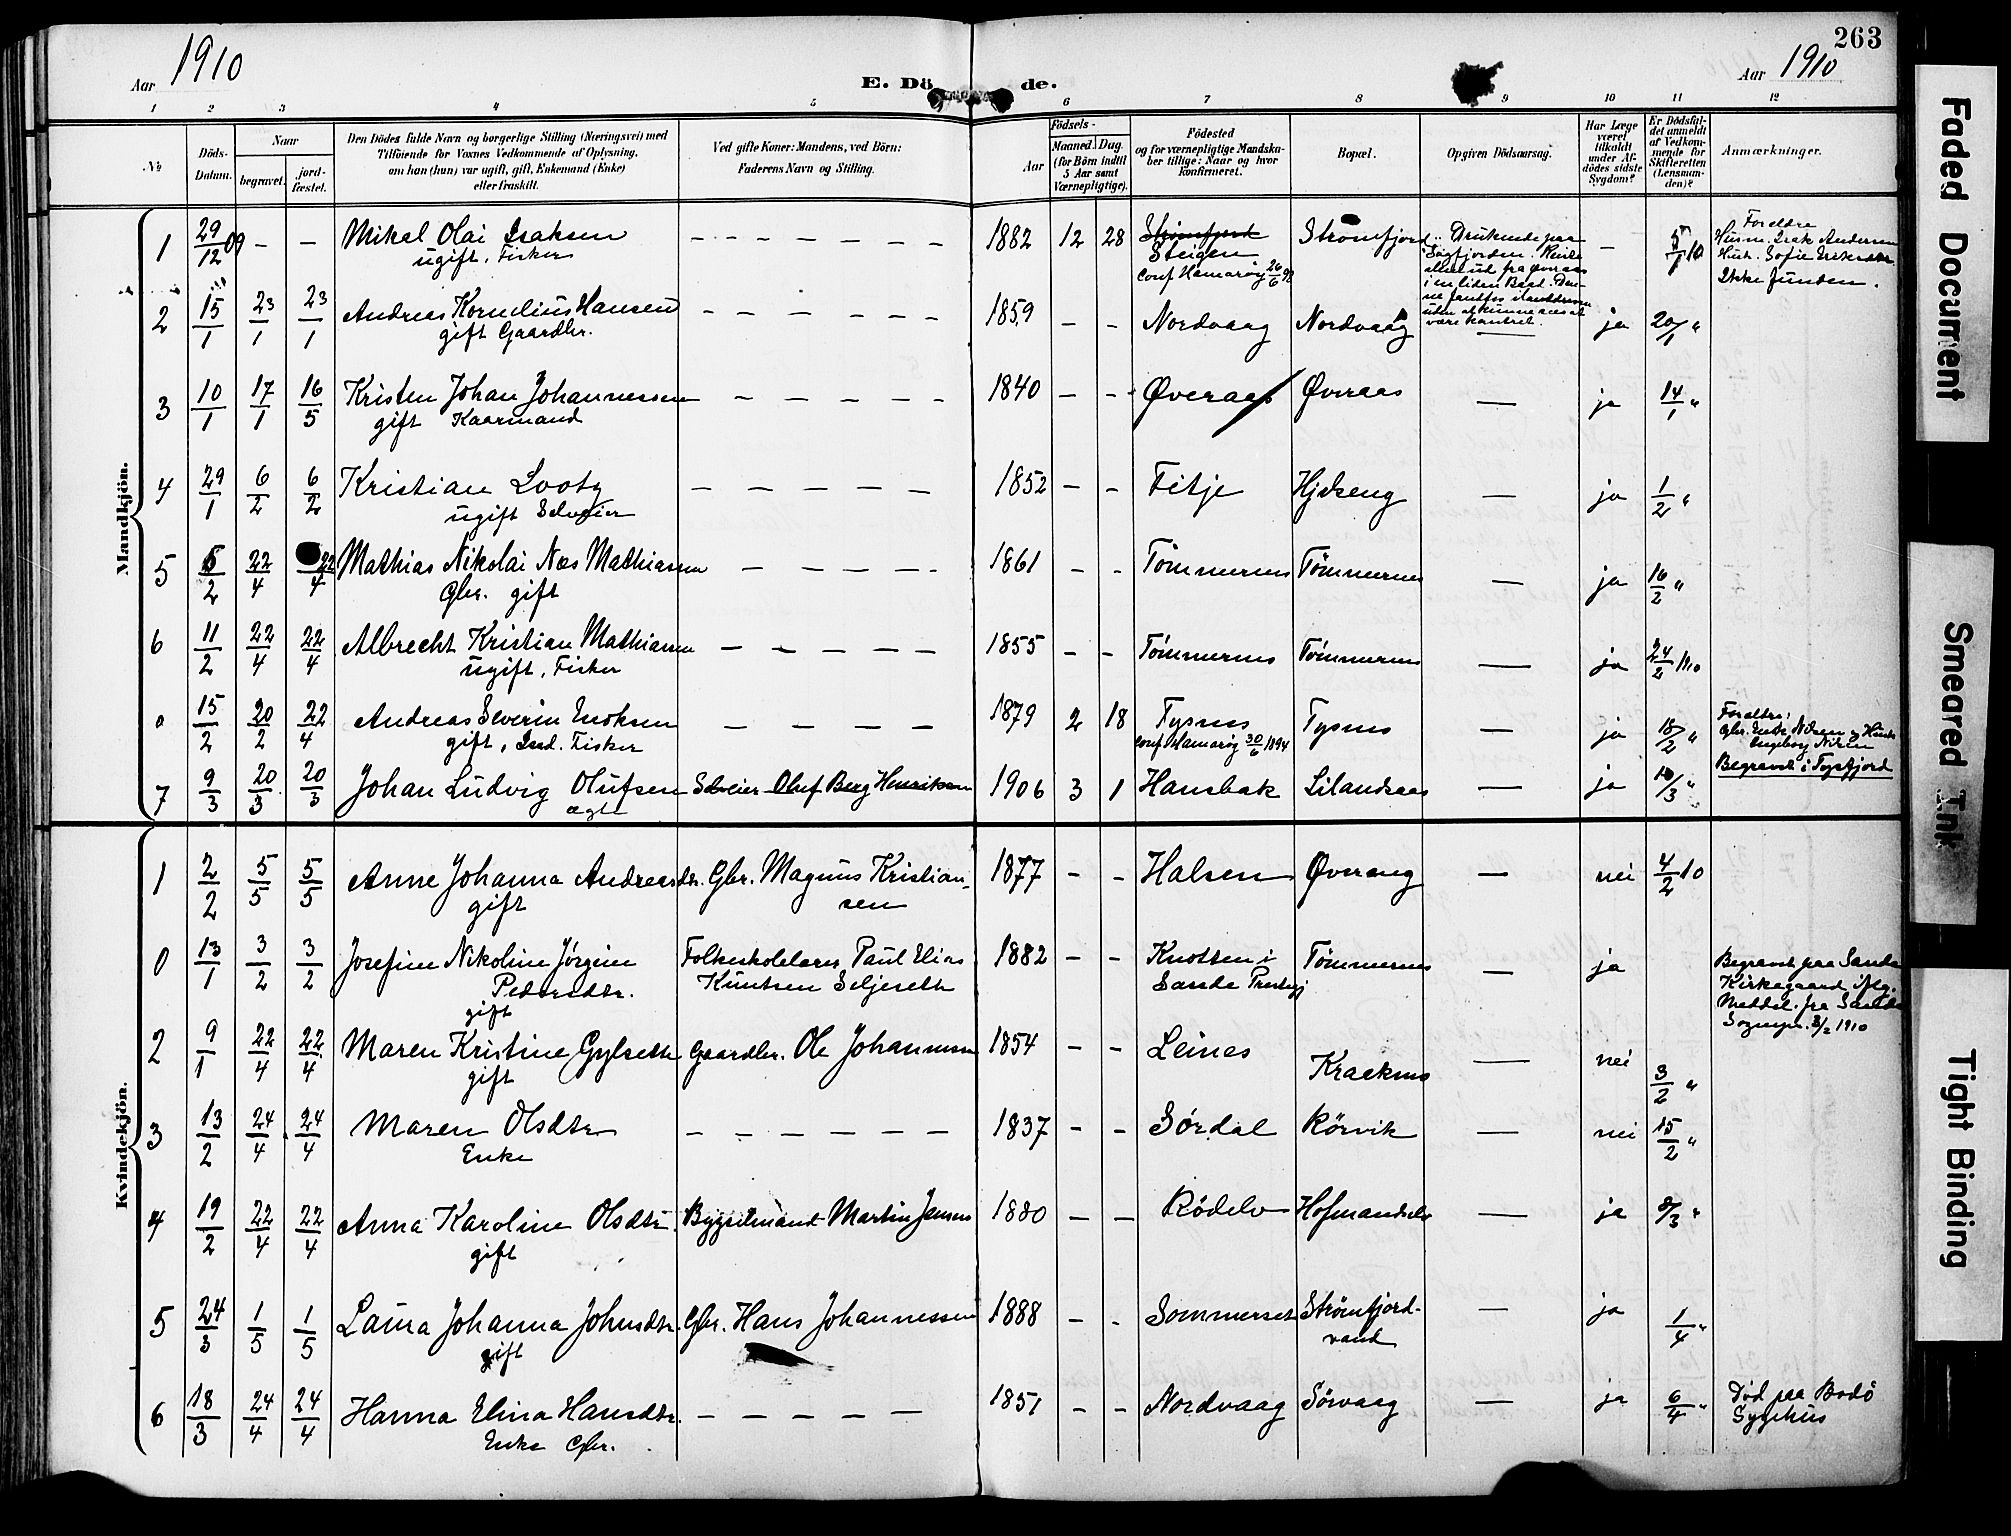 263
Aar 1910
E. Dö de.
Aar 1910
1 2 3 4 5 6 7 8 9 10 11 12
No
Döds-Datum.
Naar
begravet.
jord-fæstet.
Den Dödes fulde Navn og borgerlige Stilling (Næringsvei) med
Tilföiende for Voxnes Vedkommende af Oplysning,
om han (hun) var ugift, gift, Enkemand (Enke)
eller fraskilt.
Ved gifte Koner: Mandens, ved Börn:
Faderens Navn og Stilling.
Födsels-
Aar
Maaned. Dag.
(for Börn indtil
5 Aar samt
Værnepligtige).
Födested
og for værnepligtige Mandska-
ber tillige: Naar og hvor
konfirmeret.
Bopæl.
Opgiven Dödsaarsag.
Har Læge
været
tilkaldt
under Af-
dödes sidste
Sygdom?
Er Dödsfal-
det anmeldt
af Vedkom-
mende for
Skifteretten
(Lensman-
den)?
Anmærkninger.
Mandkjön.
1 29/12 09 - - Mikal Olai Isaksen 1882 12 28 Strømfjord Strømfjord Drukende paa - 5/1 10 Foreldre
ugift, Fisker Steigen Husm. Isak Andersen
conf Hamarøy 26/6 Hust. Sofie
i en liden Baad. Ikke funden.
2 15/1 23/1 23/1 Andreas Kornelius Hansen 1859 - - Nordvaag Nordvaag — ja 20/1 "
gift Gaardbr.
3 10/1 17/1 16/5 Kristen Johan Johannessen 1840 - - Øveraas Øveraas — ja 14/1 "
gift Kaarmand
4 29/1 6/2 6/2 Kristian 1852 - - Fitje — ja 1/2 "
ugift Selveier
5 5/2 22/4 22/4 Mathias Nikolai Næs Mathiassen 1861 - - Tømmernes Tømmernes — ja 16/2 "
Gbr. gift
6 11/2 22/4 22/4 Albrecht Kristian Mathiassen 1855 - - Tømmernes Tømmernes — ja 24/2 1910
ugift, Fisker
0 15/2 20/2 22/4 Andreas Severin Enoksen 1879 2 18 Tysnes Tysnes — ja 18/2 " Foreldre:
gift, Ind. Fisker conf Hamarøy 30/6 1894 Gbr. Enok Nilsen og Hust.
Ingeborg Nilsen
Begravet i Tysfjord
7 9/3 20/3 20/3 Johan Ludvig Olufsen Selveier Oluf Berg Henriksen 1906 3 1 Hansbak Lilandsaas — ja 10/3 "
ægte
Kvindekjön.
1 2/2 5/5 5/5 Anne Johanna Andreasdtr. Gbr. Magnus Kristian- 1877 - - Halsen Øverang — nei 4/2 10
gift sen
0 13/1 3/2 3/2 Josefine Nikoline Jørgine Folkeskolelærer Paul Elias 1882 - - Knotten i Tømmernes — ja Begravet paa Sande
Pedersdtr. Knutsen Seljeseth Sande Prestegj Kirkegaard iflg.
gift Meddel. fra Sande
Sognepr. 8/2 1910
2 9/1 22/4 22/4 Maren Kristine Gylseth Gaardbr. Ole Johannessen 1854 - - Leines Kraakmo — nei 3/2 "
gift
3 13/2 24/4 24/4 Maren Olsdtr 1837 - - Sørdal Rörvik — nei 15/2 "
Enke
4 19/2 22/4 22/4 Anna Karoline Olsdtr. Bygselmand Martin Jensen 1880 - - Rødelv — ja 8/3 "
gift
5 24/3 1/5 1/5 Laura Johanna Johnsdtr. Gbr. Hans Johannessen 1888 - - Sommerset Strømfjord- — ja 1/4 "
gift vand
6 18/3 24/4 24/4 Hanna Elina Hansdtr. 1851 - - Nordvaag Sörvaag ja 6/4 " Død paa Bodö
Enke Gbr. Sygehus
Faded Document
Smeared Ink
Tight Binding